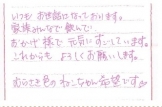 いつもお世話になっております。
家族みんなで飲んで
おかげ様で元気にすごしています。
これからもよろしくお願いします。
むらさき色のねこちゃん希望です